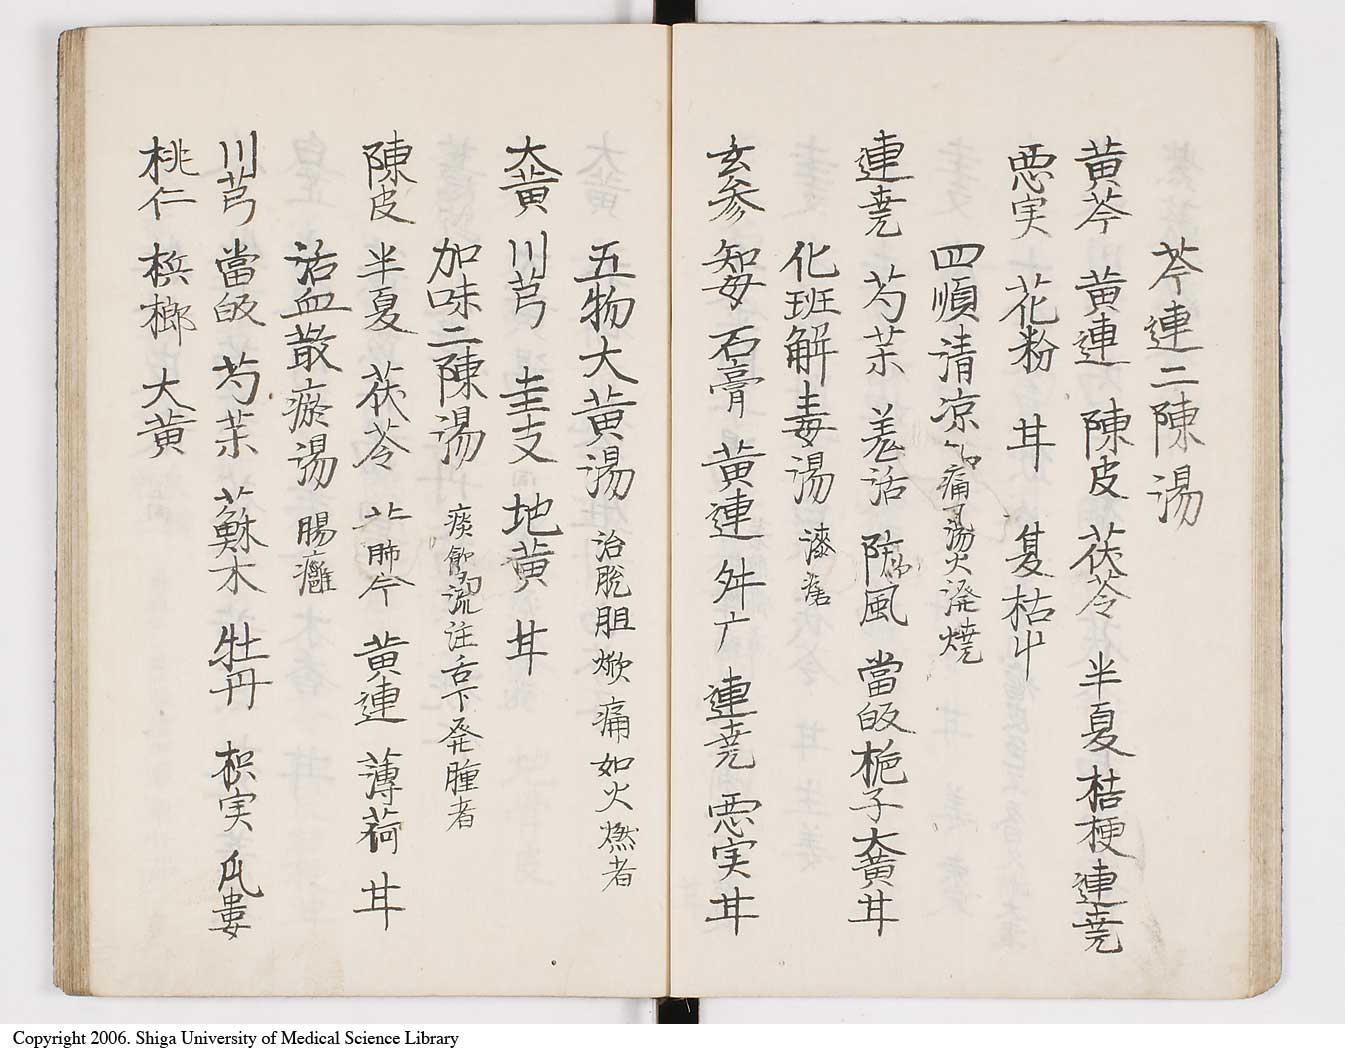 芩連二陳湯
黄芩 黄連 陳皮 茯苓 半夏 桔梗 連堯
悪実 花粉 甘 夏枯艸
四順清凉 痛 湯火溌焼
連堯 芍茱 羗活 防風 當皈 梔子 大黄 甘
化斑解毒湯 漆瘡
玄参 知母 石膏 黄連 舛广 連堯 悪実 甘
五物大黄湯 治脱胆焮痛如火燃者
大黄 川芎 圭支 地黄 甘
加味二陳湯 痰飲流注舌下発腫者
陳皮 半夏 茯苓 黄連 薄荷 甘
活血散瘀湯 腸癰
川芎 當皈 芍茱 蘇木 牡丹 枳実 瓜婁
桃仁 梹榔 大黄
Copyright 2006. Shiga University of Medical Science Library